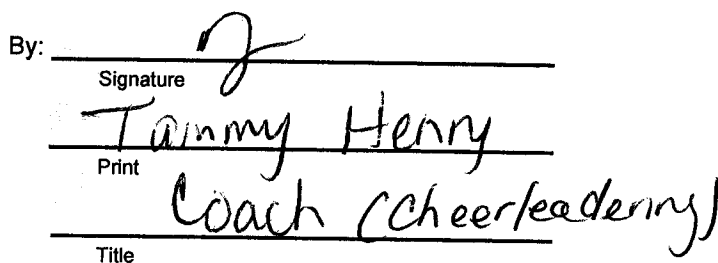 By:
Signature
Tammy Henry
Print
Coach (Cheerleadering)
Title